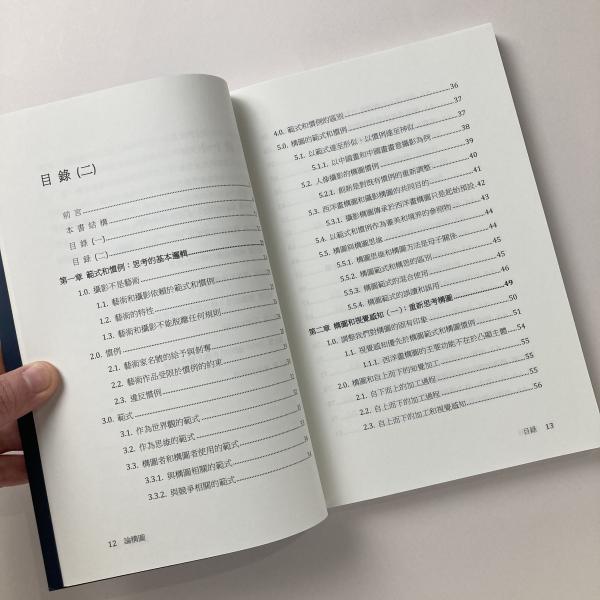 目錄 (二)
前言
本書結構
目錄 (一)
目錄 (二)
第一章 範式和慣例：思考的基本邏輯
1.0. 攝影不是藝術
1.1. 藝術和攝影依賴於範式和慣例
1.2. 藝術的特性
1.3. 藝術和攝影不能脫離任何規則
2.0. 慣例
2.1. 藝術家名號的給予與剝奪
2.2. 藝術作品受限於慣例的約束
2.3. 違反慣例
3.0. 範式
3.1. 作為世界觀的範式
3.2. 作為思維的範式
3.3. 構圖者和構圖者使用的範式
3.3.1. 與構圖相關的範式
3.3.2. 與競爭相關的範式
12 論構圖
4.0. 範式和慣例的區別 36
5.0. 構圖的範式和慣例 37
5.1. 以範式達至形似，以慣例達至神似 37
5.1.1. 以中國畫和中國畫畫意攝影為例 38
5.2. 人像攝影的構圖慣例 39
5.2.1. 創新是對既有慣例的重新調整 40
5.3. 西洋畫構圖和攝影構圖的共同目的 41
5.3.1. 攝影構圖傳承於西洋畫構圖只是起始預設 42
5.4. 以範式和慣例作為審美和境界的參照物 43
5.5. 構圖與構圖思維 44
5.5.1. 構圖思維和構圖方法是母子關係 44
5.5.2. 構圖範式和構思的區別 45
5.5.3. 構圖範式的混合使用 45
5.5.4. 構圖範式的誤讀和誤用 46
第二章 構圖和視覺感知 (一)：重新思考構圖 49
1.0. 調整我們對構圖的原有印象 50
1.1. 視覺感知優先於構圖範式和構圖慣例 51
1.1.1. 西洋畫構圖的主要功能不在於凸顯主體 54
2.0. 構圖和自上而下的知覺加工 55
2.1. 自下而上的加工過程 55
2.2. 自上而下的加工過程 55
2.3. 自上而下的加工和視覺感知 56
目錄 13